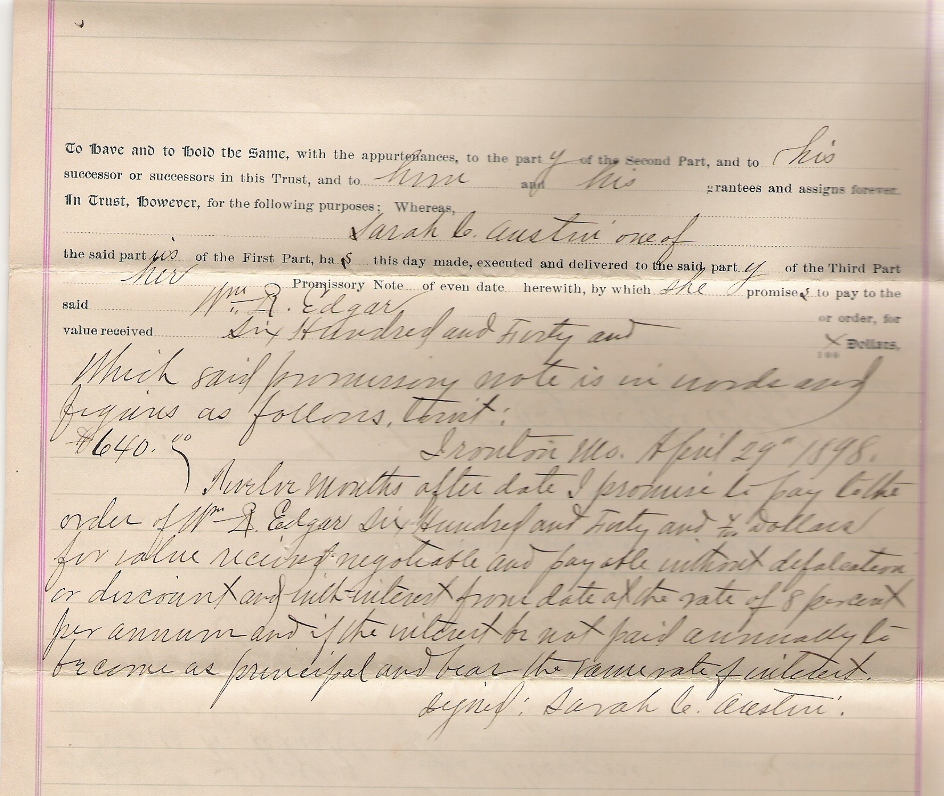 To Have and to Hold the Same, with the appurtenances, to the party of the Second Part, and to his
successor or successors in this Trust, and to him and his grantees and assigns forever.
In Trust, However, for the following purposes; Whereas,
Sarah C. Austin one of
the said parties of the First Part, has this day made, executed and delivered to the said party of the Third Part
her Promissory Note of even date herewith, by which she promises to pay to the
said Wm R. Edgar or order, for
value received Six Hundred and Forty and X/100 Dollars,
Which said promissory note is in words and
figures as follows, towit:
$640.00 Ironton Mo. April 29" 1898.
Twelve Months after date I promise to pay to the
order of Wm R. Edgar Six Hundred and Forty and x/100 Dollars
for value received negotiable and payable without defalcation
or discount and with interest from date at the rate of 8 percent
per annum and if the interest be not paid annually to
become as principal and bear the same rate of interest.
signed: Sarah C. Austin.